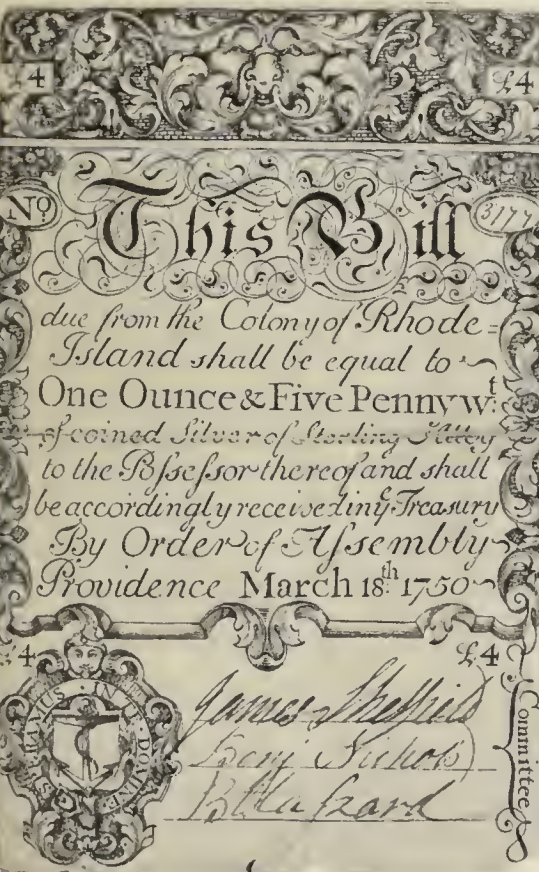 4 £4
No 3177
This Bill
due from the Colony of Rhode=
Island shall be equal to
One Ounce & Five Pennywt.
of coined Silver of Sterling
to the Possessor thereof and shall
be accordingly received in ye Treasury
By Order of Assembly
Providence March 18th. 1750
£4 £4
IN TE DOMINE SPERAVIMUS
James Sheffield
Benj Nichols
Hazard
Committee